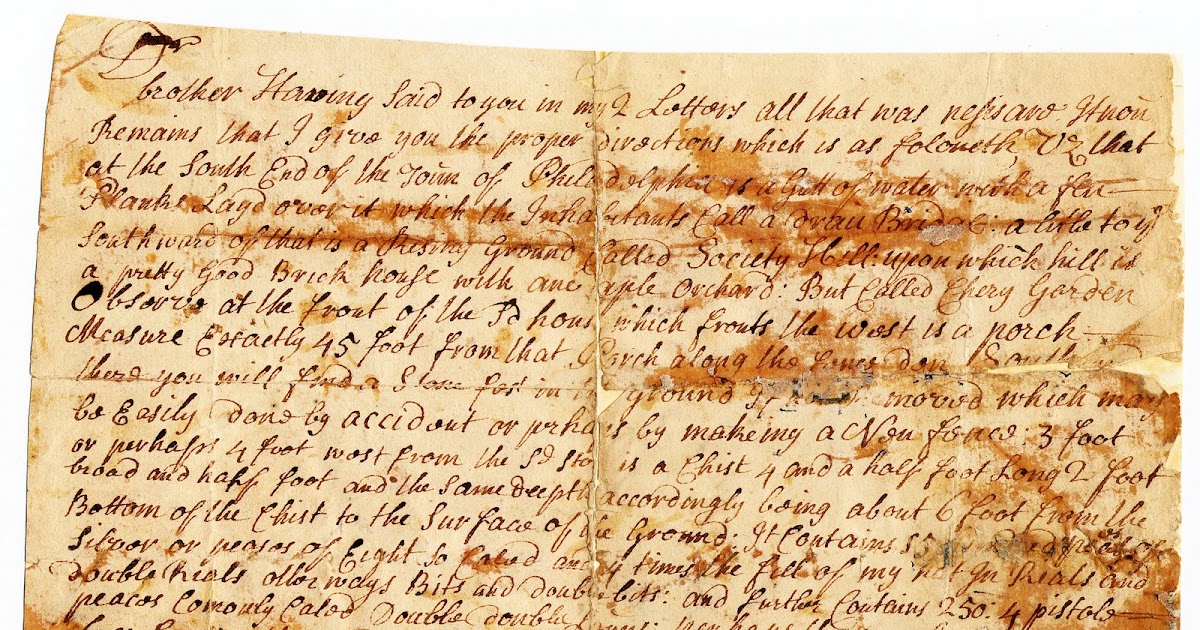 Dr
brother Having Said to you in my 2 Letters all that was nessare
Remains that I give you the proper directions which is as foloweth, Vz that
at the South End of the Toun of Philadelphia is a Gutt of water with a few
Planks Layd over it which the Inhabitants Call a Drau Bridge: a litle to ye
Southward of that is a Rising Ground Called Society Hill: upon which hill is
a pretty Good Brick house with ane aple Orchard: But Called Chery Garden
Observe at the front of the Sd hous which fronts the west is a porch
Measure Exactly 45 foot from that Porch along the South
there you will find a Stone in the ground If moved which may
be Easily done by accident or prhaps by makeing a New fence: 3 foot
or perhaps 4 foot west from the Sd Sto is a Chist 4 and a half foot Long 2 foot
broad and half foot and the Same deepth accordingly being about 6 foot from the
Bottom of the Chist to the Surface of the Ground: It Contains
Silver or peases of Eight So Caled and 4 times the fill of my in Reals and
double Reals otherways Bits and double bits: and further Contains 250: 4 pistole
peaces Comonly Caled Double double